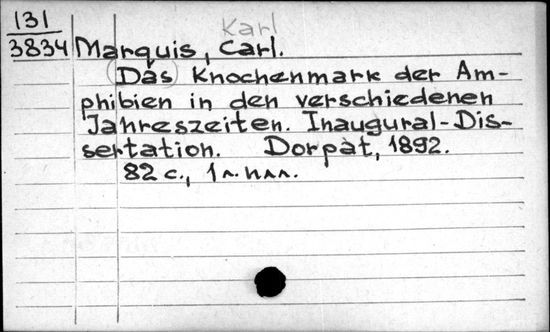 Karl
131
3834 Marquis, Carl.
(Das) Knochenmark der Am-
phibien in den verschiedenen
Jahreszeiten. Inaugural-Dis-
sertation. Dorpat, 1892.
82 с., 1 л. илл.